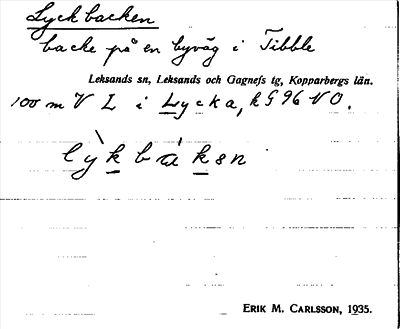 Lyckbacken
backe på en byväg i Tibble
Leksands sn, Leksands och Gagnefs tg, Kopparbergs län.
100 m V L i Lycka, k G 96 V O.
lỳk báksn
ERIK M. CARLSSON, 1935.